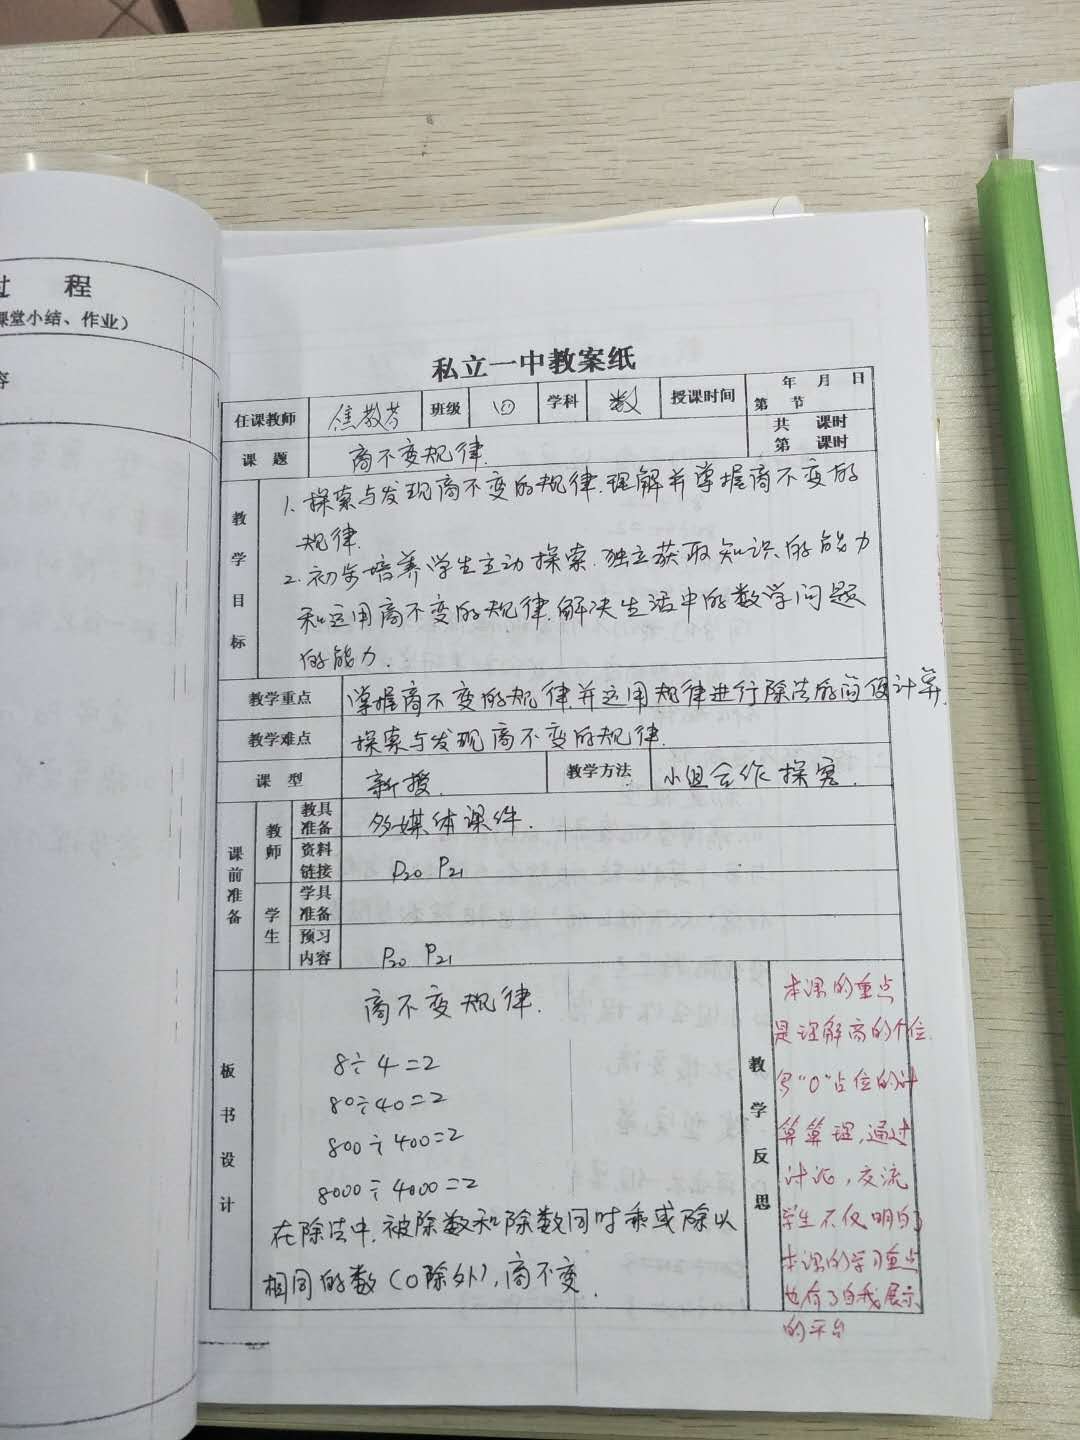 过 程
课堂小结、作业）
容
私立一中教案纸
任课教师 焦教芳 班级 四 学科 数 授课时间 年 月 日
第 节
课 题 商不变规律.
共 课时
第 课时
教学目标
1. 探索与发现商不变的规律.理解并掌握商不变的
规律.
2. 初步培养学生主动探索.独立获取知识的能力
和运用商不变的规律.解决生活中的数学问题
的能力.
教学重点 掌握商不变的规律.并运用规律进行除法的简便计算.
教学难点 探索与发现商不变的规律.
课 型 新授. 教学方法 小组合作探究.
课前准备
教师 教具准备 多媒体课件.
资料链接 P20 P21
学生 学具准备
预习内容 P20 P21
板书设计
商不变规律.
8÷4=2
80÷40=2
800÷400=2
8000÷4000=2
在除法中.被除数和除数同时乘或除以
相同的数（0除外），商不变.
教学反思
本课的重点
是理解商的个位.
写“0”占位的计
算算理，通过
讨论，交流
学生不仅明白了
本课的学习重点
也有了自我展示
的平台